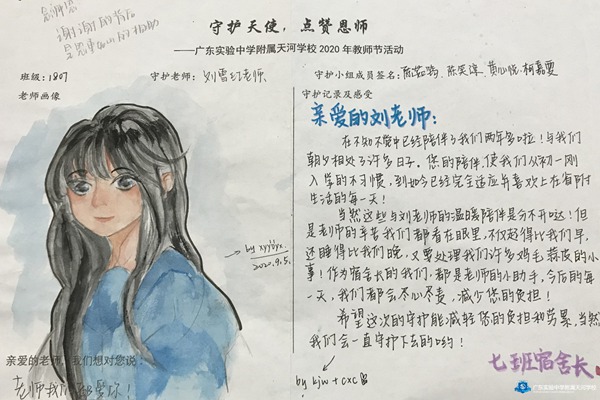 守护天使，点赞恩师
——广东实验中学附属天河学校 2020 年教师节活动
班级：1807
守护老师：刘雪红老师
守护小组成员签名：
老师画像
守护记录及感受
亲爱的刘老师：
在不知不觉中已经陪伴了我们两年多啦！与我们
朝夕相处了许多日子。您的陪伴，使我们从初一刚
入学的不习惯，到如今已经完全适应并喜欢上在省附
生活的每一天！
当然这些与刘老师的温暖陪伴是分不开哒！但
是老师的辛苦我们都看在眼里，不仅起得比我们早，
还睡得比我们晚，又要处理我们许多鸡毛蒜皮的小
事！作为宿舍长的我们，都是老师的小助手，今后的每
一天，我们都会尽心尽责，减少您的负担！
希望这次的守护能减轻您的负担和劳累，当然
我们会一直守护下去的哟！
七班宿舍长
by ljw + cxc
2020.9.5.
亲爱的老师，我们想对您说：
老师我们都爱你！
广东实验中学附属天河学校